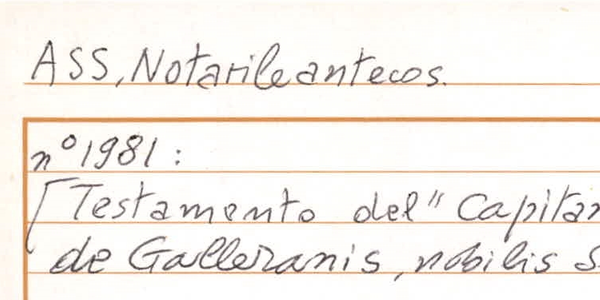 ASS, Notarile antecos.
n° 1981 :
[Testamento del "Capitan
de Galleranis, nobilis S